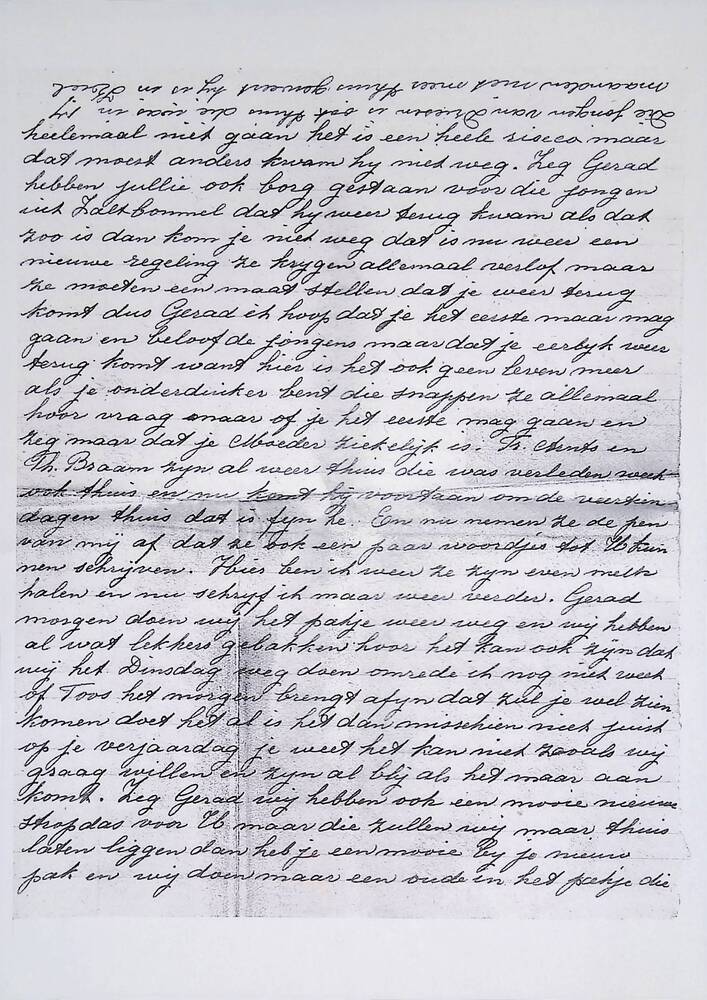 De jongen van Driessen is ook thuis die was in
maanden niet meer thuis geweest hy is in
heelemaal niet gaan het is een heele riseco maar
dat moest anders kwam hy niet weg. Zeg Gerad
hebben jullie ook borg gestaan voor die jongen
uit Zaltbommel dat hy weer terug kwam als dat
zoo is dan kom je niet weg dat is nu weer een
nieuwe regeling ze krygen allemaal verlof maar
ze moeten een maat stellen dat je weer terug
komt dus Gerad ik hoop dat je het eerste maar mag
gaan en beloof de jongens maar dat je eerlyk weer
terug komt want hier is het ook geen leven meer
als je onderduiker bent die snappen ze allemaal
hoor vraag maar of je het eerste mag gaan en
zeg maar dat je Moeder ziekelijk is. Fr. Arnts en
Th. Braam zyn al weer thuis die was verleden week
ook thuis en nu komt hij voortaan om de veertien
dagen thuis dat is fyn he. En nu nemen ze de pen
van mij af dat ze ook een paar woordjes tot U kun
nen schrijven. Hier ben ik weer ze zyn even melk
halen en nu schrijf ik maar weer verder. Gerad
morgen doen wij het pakje weer weg en wij hebben
al wat lekkers gebakken hoor het kan ook zyn dat
wij het Dinsdag weg doen omrede ik nog niet weet
of Toos het morgen brengt afyn dat zul je wel zien
komen doet het al is het dan misschien niet juist
op je verjaardag je weet het kan niet zooals wij
graag willen en zyn al blij als het maar aan
komt. Zeg Gerad wij hebben ook een mooie nieuwe
stropdas voor U maar die zullen wij maar thuis
laten liggen dan heb je een mooie by je nieuw
pak en wij doen maar een oude in het pakje die